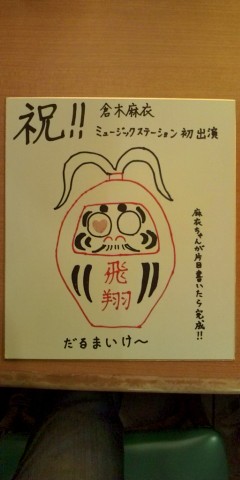 祝!!
倉木麻衣
ミュージックステーション初出演
麻衣ちゃんが片目書いたら完成!!
飛翔
だるまいけ〜